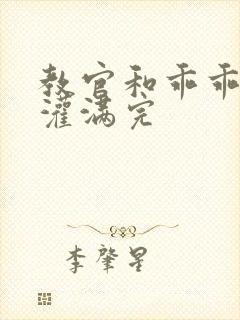 教官和乖乖
灌满完
李肇星